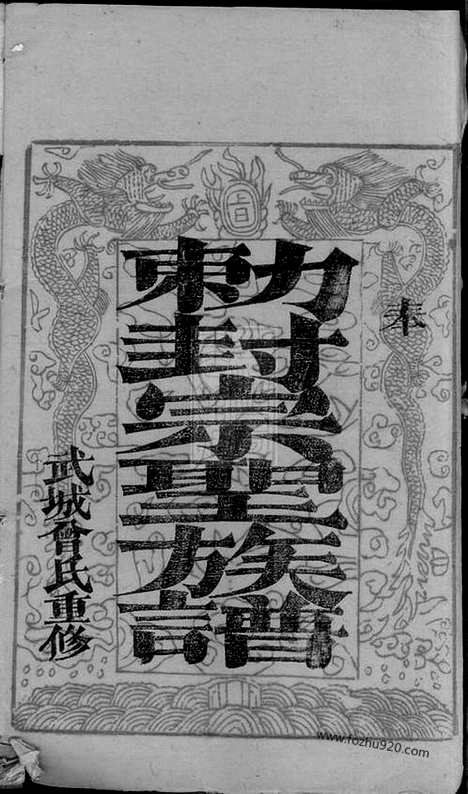 旨
奉
勅封宗聖族譜
武城曾氏重修
www.fozhu920.com